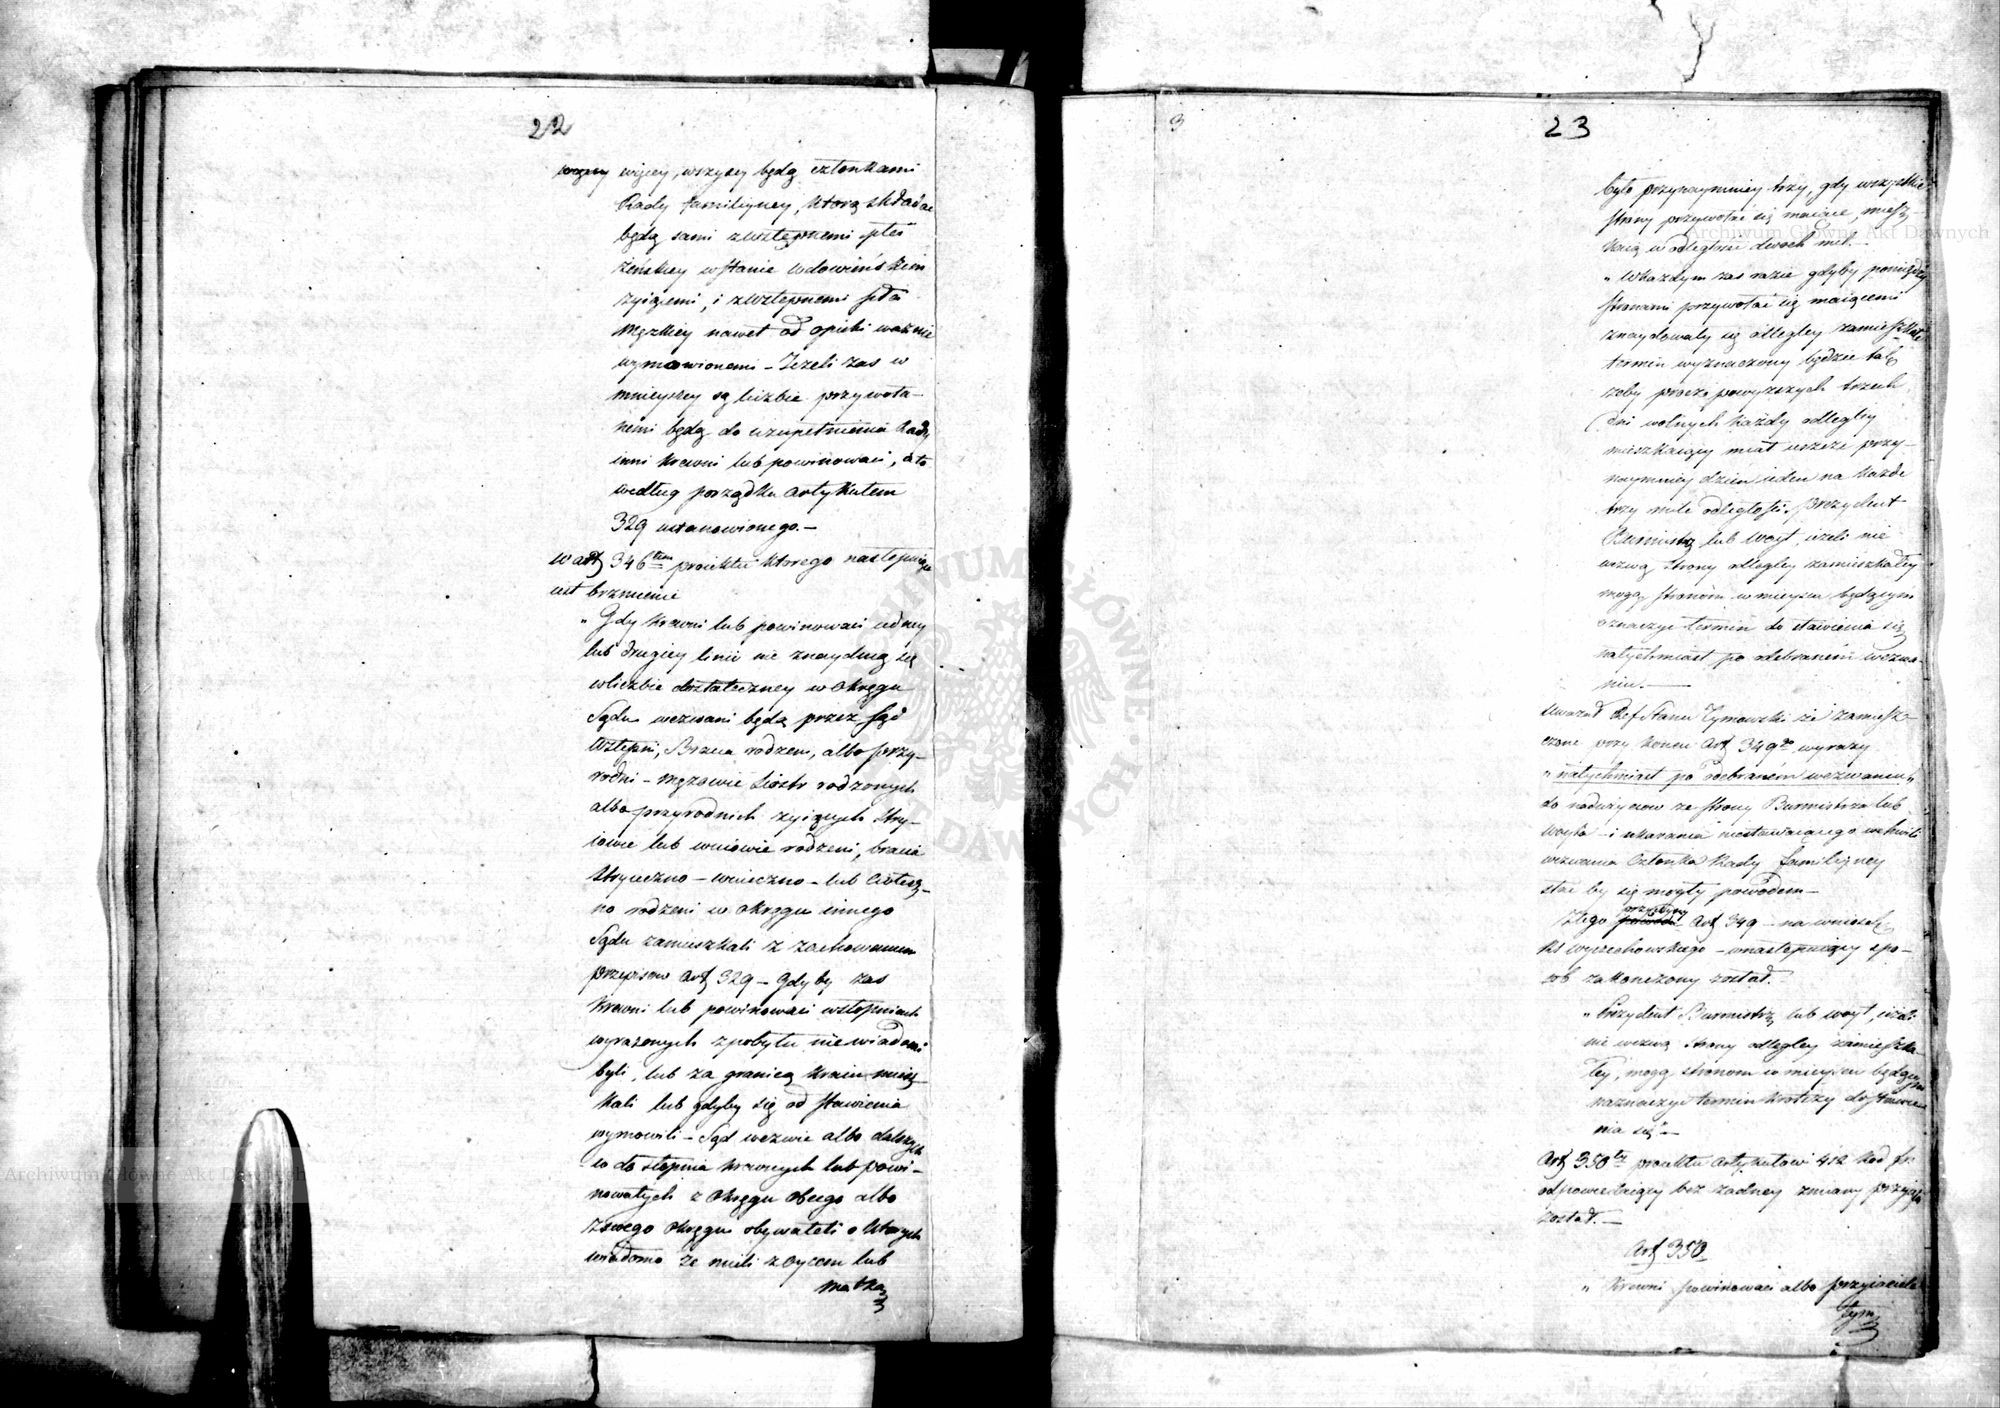 22
więcey, wszyscy będą członkami
Rady familiyney, którą składać
będą sami z wstępnemi płci
żeńskiey w stanie wdowieńskim
żyiącemi, i z wstępnemi płci
męzkiey nawet od opieki ważnie
wymowionemi – Jeżeli zas w
mnieyszey są liczbie przywoła-
nemi będą do uzupełnienia Rady
inni krewni lub powinowaci, a to
według porządku artykułem
329 ustanowionego. –
w art 346tym proiektu którego następuiące
iest brzmienie
„ Gdy krewni lub powinowaci iedney
lub drugiey linii nie znaydują się
w liczbie dostateczney w okręgu
Sądu wezwani będą przez Sąd
Wstępni, Bracia rodzeni, albo przy-
rodni – mężowie Siostr rodzonych
albo przyrodnich żyiących Stry-
iowie lub wuiowie rodzeni, bracia
stryieczno – wuieczno – lub Ciotecz-
no rodzeni w okręgu innego
Sądu zamieszkali z zachowaniem
przepisow art 329 – Gdyby zas
krewni lub powinowaci w stopniach
wyrażonych z pobytu niewiadomi
byli, lub za granicą kraiu miesz-
kali lub gdyby się od stawienia
wymowili – Sąd wezwie albo dalszych
co do stopnia krewnych lub powi-
nowatych z okręgu obcego albo
z swego okręgu obywateli o których
wiadomo że mieli z oycem lub
matką
3
23
było przynaymniey trzy, gdy wszystkie
strony przywołać się maiące, miesz-
kaią w odległości dwoch mil. –
„ W każdym zas razie gdyby pomiędzy
stronami przywołać się maiącemi
znaydowały się odległey zamieszkałe
termin wyznaczony będzie tak
żeby procz powyższych trzech
dni wolnych każdy odległey
mieszkaiący miał ieszcze przy-
naymniey dzień ieden na każde
trzy mile odległości. Prezydent
Burmistrz lub Woyt, ieżeli nie
wezwą strony odległey zamieszkałey
mogą stronom w mieyscu będącym
oznaczyć termin do stawienia się
natychmiast po odebraném wezwa-
niu. –
Uważał Ref. Stanu Tymowski że zamiesz-
czone przy koncu art 349go wyrazy
„ natychmiast po odebraném wezwaniu „
do nadużyciow ze strony Burmistrza lub
Woyta – i ukarania niestawaiącego w chwili
wezwania Członka Rady familiyney
stać by się mogły powodem –
Z tego przyczyny art 349 – na wniosek
Wyczechowskiego – w następuiący spo-
sob zakonczony został. –
„ Prezydent Burmistrz lub woyt, ieżeli
nie wezwą strony odległey zamieszka-
łey, mogą stronom w mieyscu będącym
naznaczyć termin krotszy do stawie-
nia się" –
Art 350ty proiektu artykułowi 412 kod fr.
odpowiedaiący bez żadney zmiany przyięty
został. –
Art 350
„ Krewni powinowaci albo przyiaciele
tym
Archiwum Główne Akt Dawnych
Archiwum Główne Akt Dawnych
ARCHIWUM GŁÓWNE AKT DAWNYCH